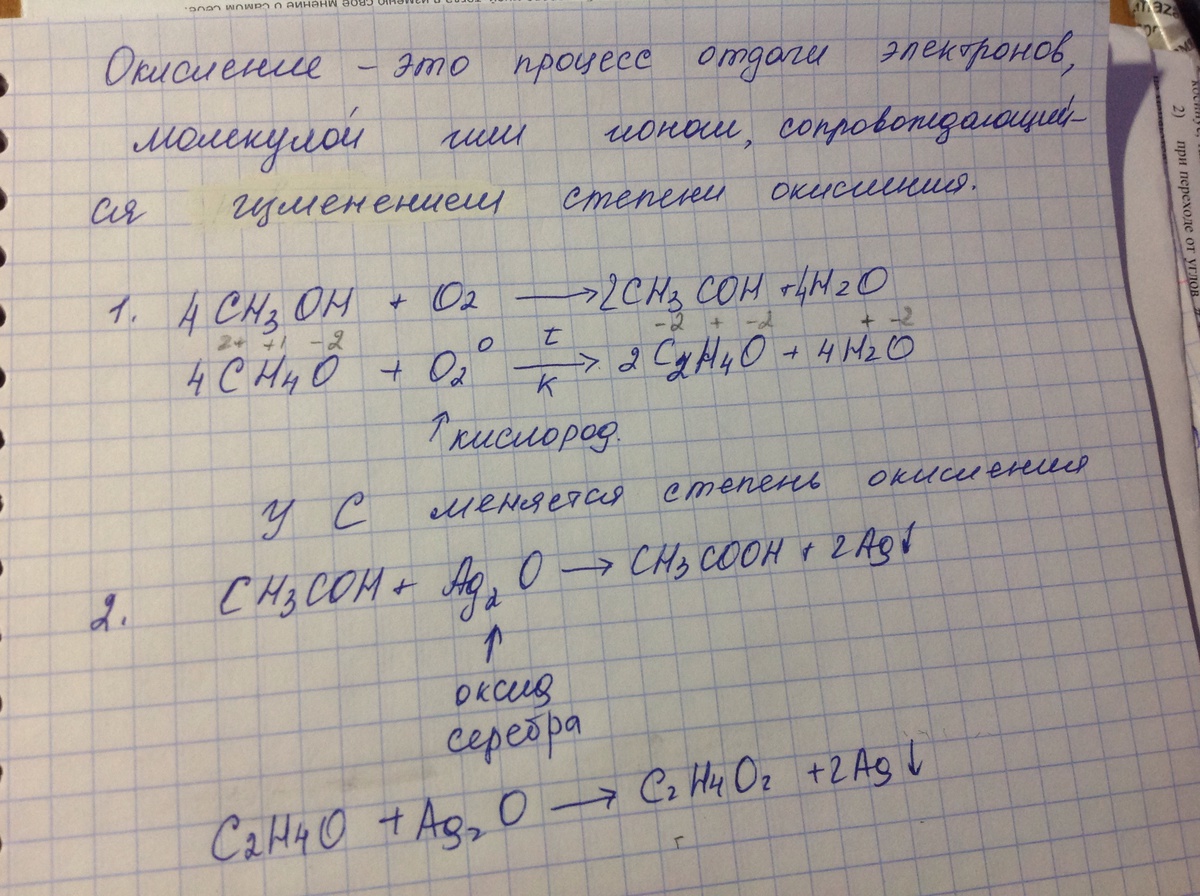 Окисление – это процесс отдачи электронов,
молекулой или ионом, сопровождающий-
ся изменением степени окисления.
1. 4CH₃OH + O₂ → 2CH₃COH + 4H₂O
2+ +1 -2 -2 + -2 + -2
4CH₄O + O₂⁰ t → к 2C₂H₄O + 4H₂O
↑ кислород.
У С меняется степень окисления
2. CH₃COH + Ag₂O → CH₃COOH + 2Ag↓
↑
оксид
серебра
C₂H₄O + Ag₂O → C₂H₄O₂ + 2Ag↓
2) при переходе от углов